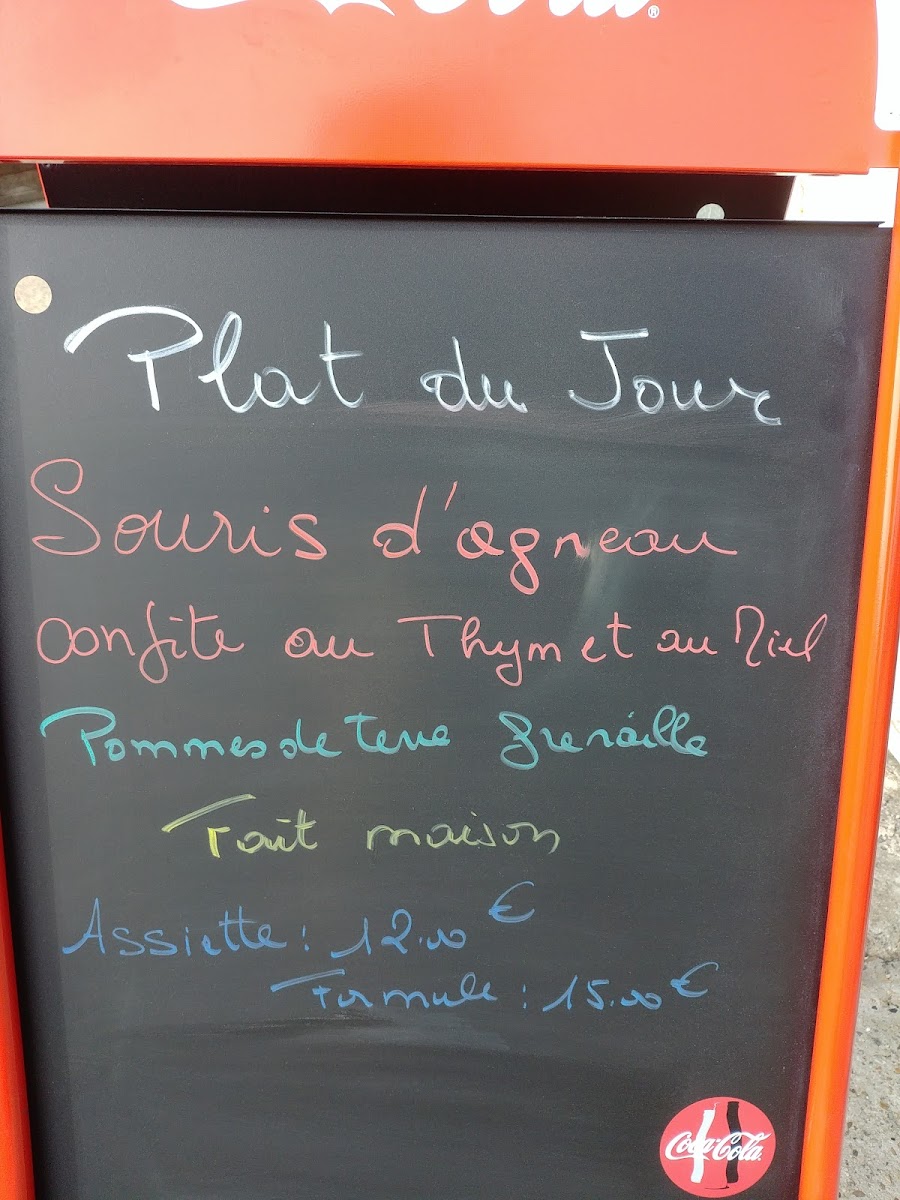 Plat du Jour
Souris d'agneau
confite au Thym et au Miel
Pommes de terre grenaille
Fait maison
Assiette : 12.00 €
Formule : 15.00 €
Coca-Cola